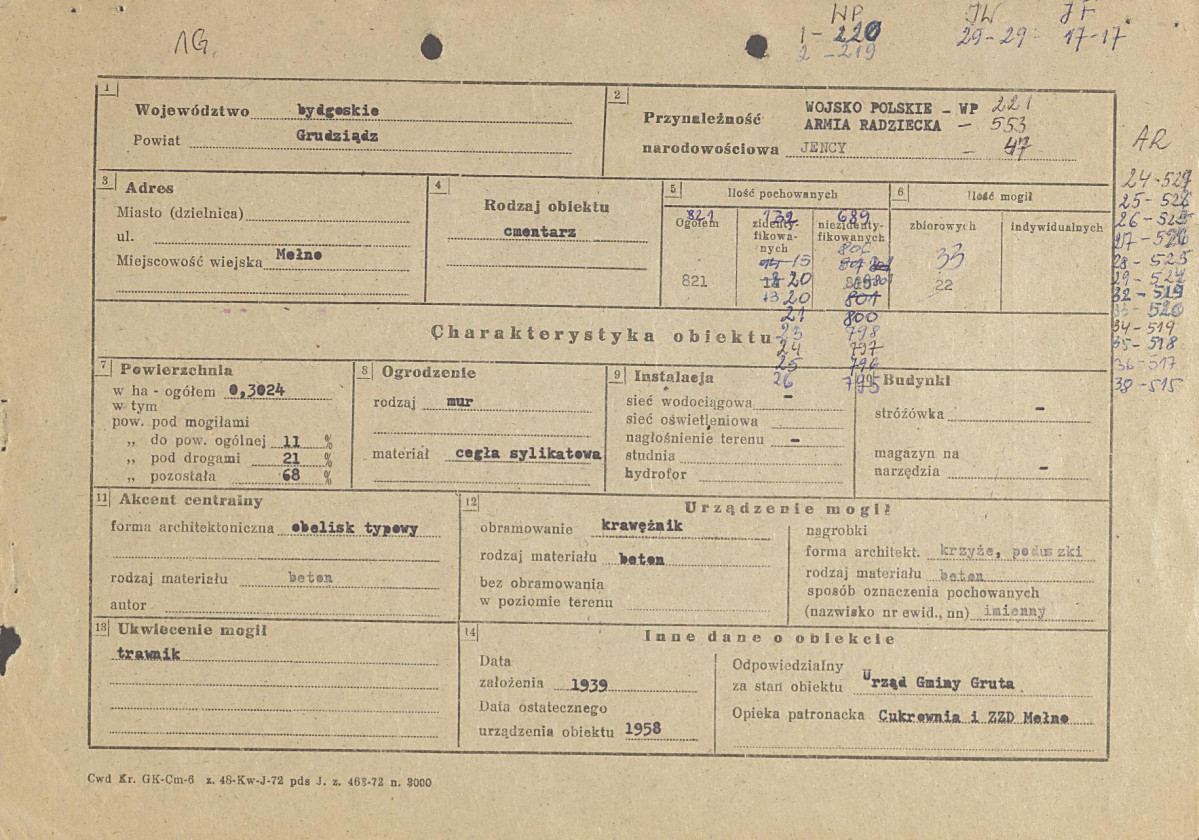 1G.
WP
1 - 220
2 - 219
JW
29 - 29
JF
17 - 17
1
Województwo bydgoskie
Powiat Grudziądz
2
Przynależność WOJSKO POLSKIE - WP 221
ARMIA RADZIECKA - 553
narodowościowa JENCY - 47
AR
24 - 527
25 - 526
26 - 525
27 - 526
28 - 525
29 - 524
32 - 519
33 - 520
34 - 519
35 - 518
36 - 517
38 - 515
3
Adres
Miasto (dzielnica)
ul.
Miejscowość wiejska Mełno
4
Rodzaj obiektu
cmentarz
5
Ilość pochowanych
821 132 689
Ogółem
zidenty-
fikowa-
nych
niezidenty-
fikowanych
821
15
20
13 20 801
21 800
23 798
24 797
25 796
26 795
6
Ilość mogił
zbiorowych indywidualnych
33
22
Charakterystyka obiektu
7
Powierzchnia
w ha - ogółem 0,3024
w tym
pow. pod mogiłami
„ do pow. ogólnej 11 %
„ pod drogami 21 %
„ pozostała 68 %
8
Ogrodzenie
rodzaj mur
materiał cegła sylikatowa
9
Instalacja
sieć wodociągowa -
sieć oświetleniowa
nagłośnienie terenu -
studnia
hydrofor
Budynki
stróżówka -
magazyn na
narzędzia -
11
Akcent centralny
forma architektoniczna obelisk typowy
rodzaj materiału beton
autor
12
Urządzenie mogił
obramowanie krawężnik
rodzaj materiału beton
bez obramowania
w poziomie terenu
nagrobki
forma architekt. krzyże, poduszki
rodzaj materiału beton
sposób oznaczenia pochowanych
(nazwisko nr ewid., nn) imienny
13
Ukwiecenie mogił
trawnik
14
Inne dane o obiekcie
Data
założenia 1939
Data ostatecznego
urządzenia obiektu 1958
Odpowiedzialny
za stan obiektu Urząd Gminy Gruta
Opieka patronacka Cukrownia i ZZD Mełno
Cwd Kr. GK-Cm-6 z. 48-Kw-J-72 pds J. z. 463-72 n. 3000